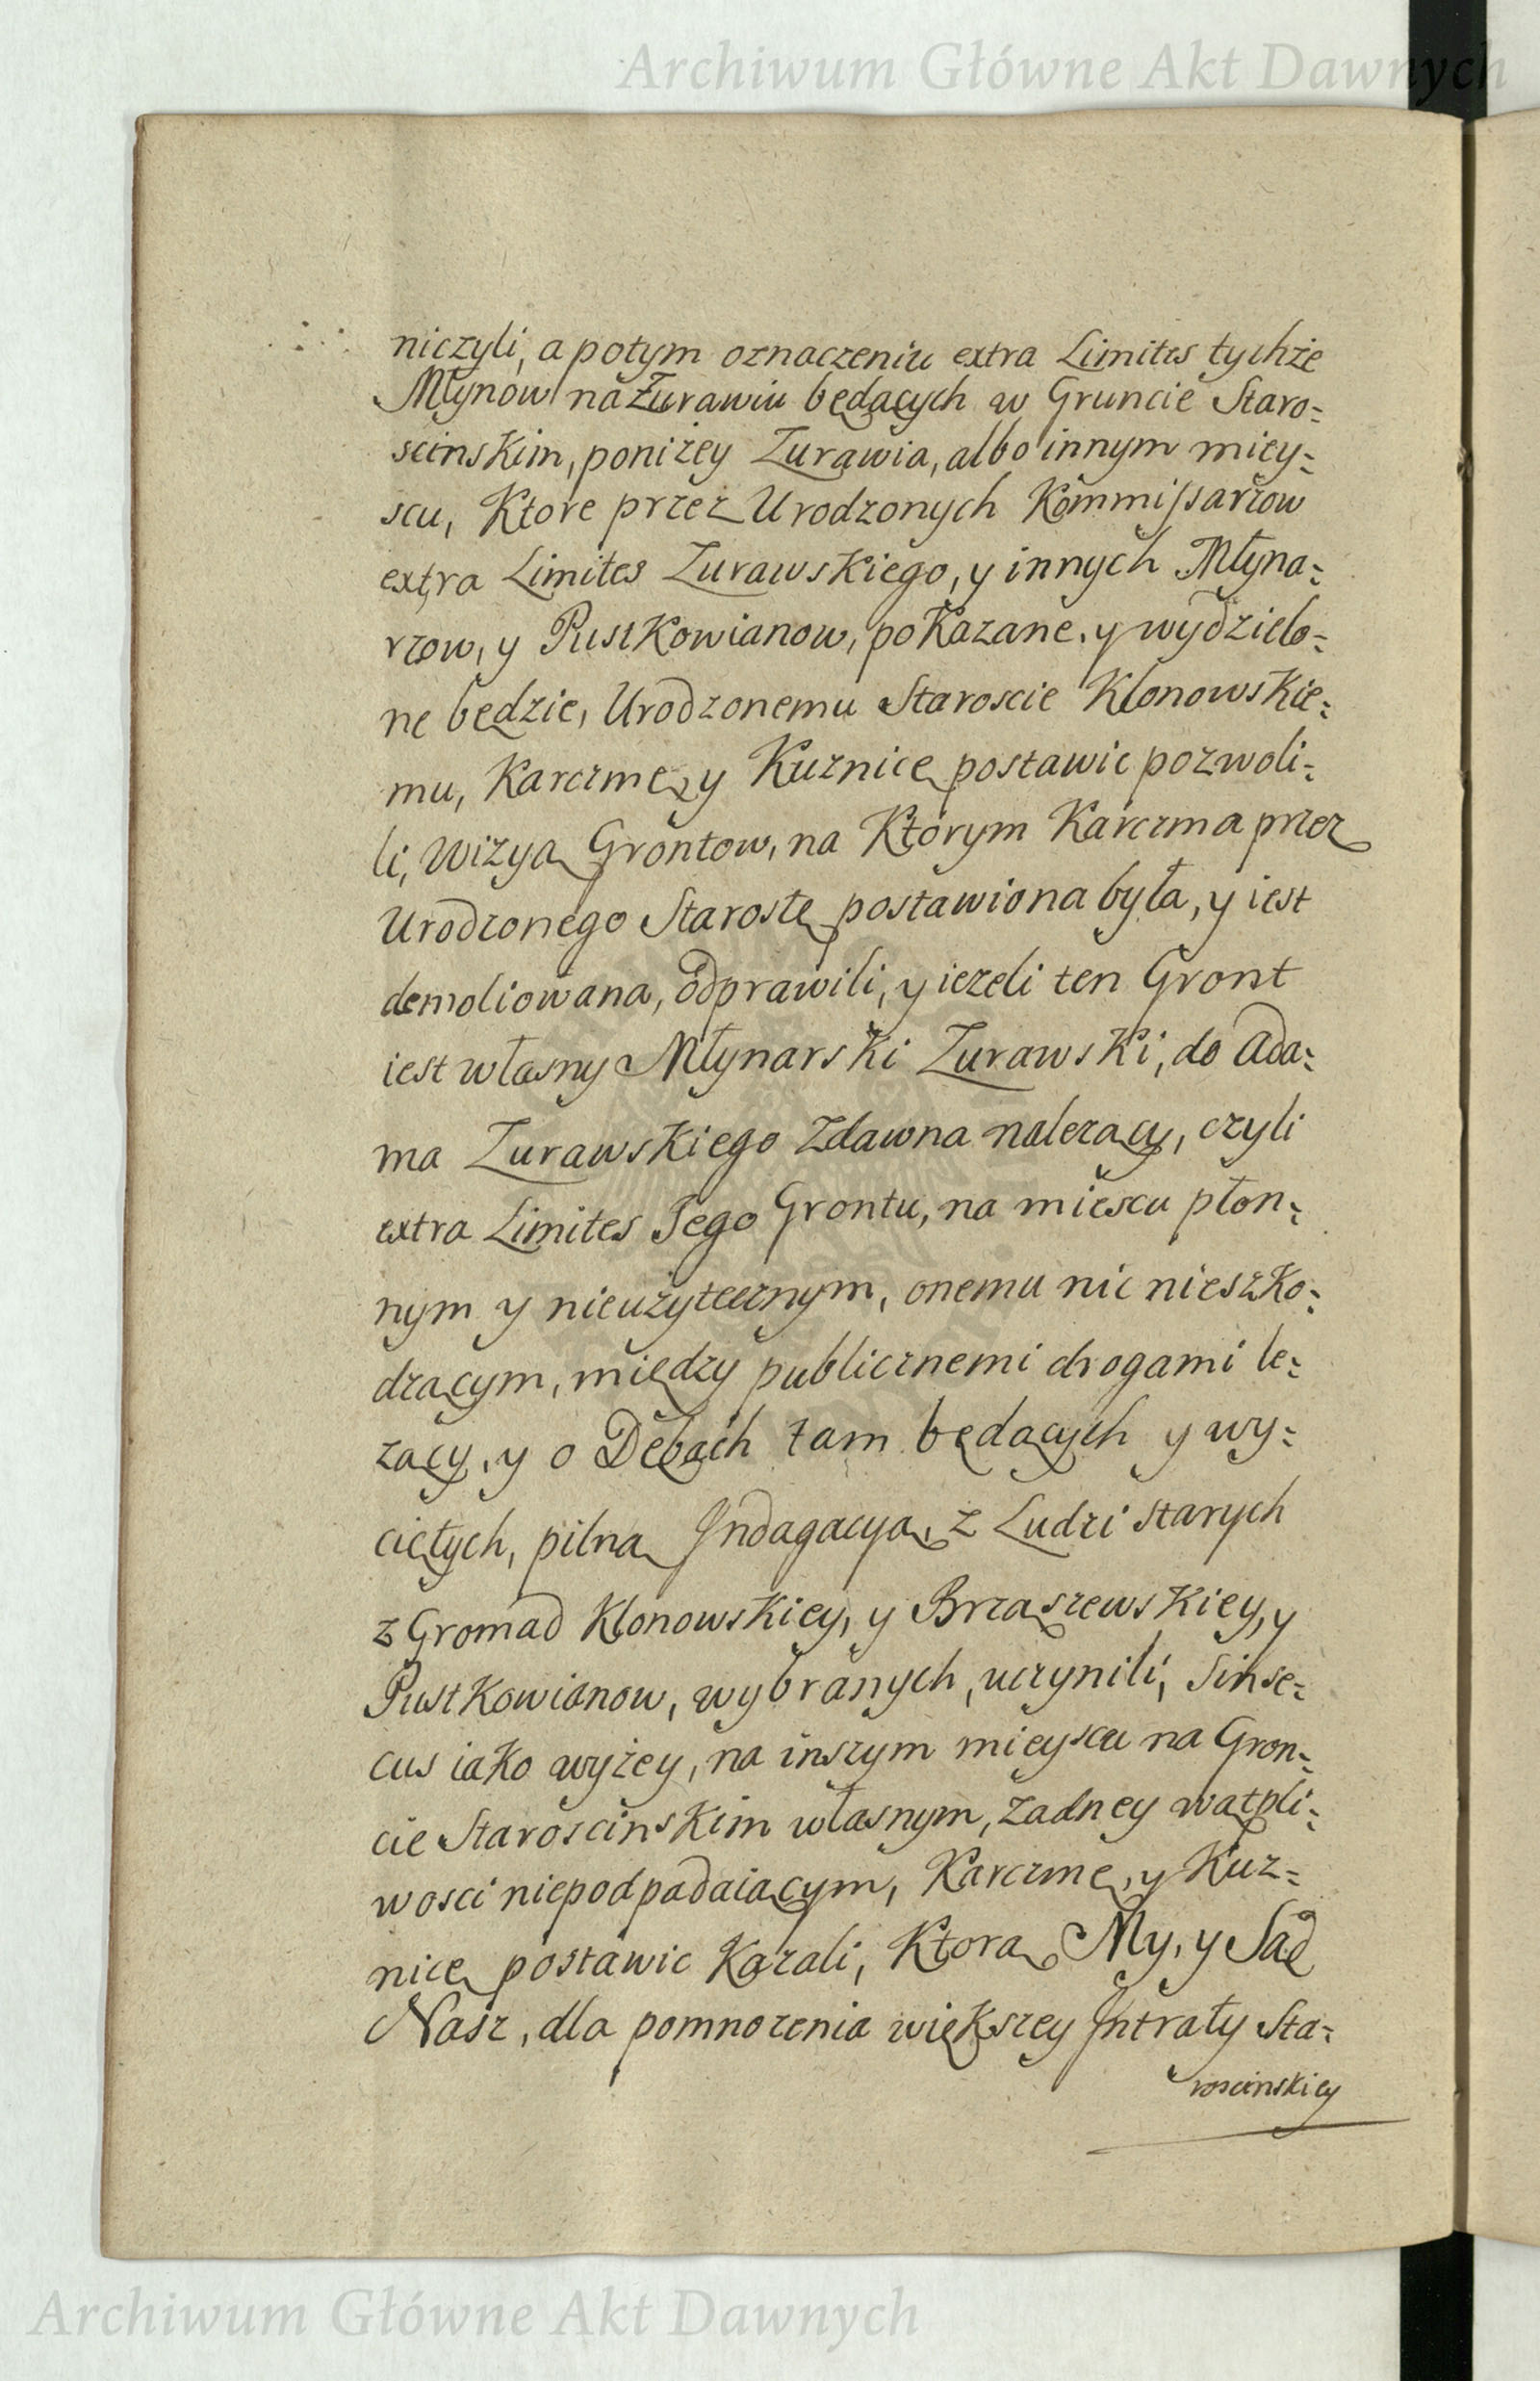 Archiwum Główne Akt Dawnych
niczyli, a potym oznaczeniu extra Limites tychże
Młynow na Żurawiu będących w Gruncie Staro=
scinskim, poniżey Zurawia, albo innym miey=
scu, Ktore przez Urodzonych Kommissarzow
extra Limites Zurawskiego, y innych Młyna=
rzow, y Pustkowianow, pokazane, y wydzielo=
ne będzie, Urodzonemu Staroscie Klonowskie=
mu, Karczmę, y Kuznicę postawic pozwoli=
li, Wizyą Grontow, na Którym Karczma przez
Urodzonego Starostę postawiona była, y iest
demoliowana, odprawili, y iezeli ten Gront
iest własny Młynarski Zurawski, do Ada=
ma Zurawskiego Zdawna nalezący, czyli
extra Limites Jego Grontu, na miescu płon=
nym y nieużytecznym, onemu nic nieszko=
dzącym, między publicznemi drogami le=
zący, y o Dębach tam będących y wy=
ciętych, pilną Jndagacyą, z Ludzi starych
z Gromad Klonowskiey, y Brząszewskiey, y
Pustkowianow, wybranych, uczynili, Sinse=
cus iako wyżey, na inszym mieyscu na Gron=
cie Staroscinskim własnym, żadney wątpli=
wosci niepodpadaiącym, Karczmę, y Kuz=
nicę postawic Kazali, Ktorą My, y Sąd
Nasz, dla pomnozenia większey Jntraty Sta=
roscinskiey
Archiwum Główne Akt Dawnych